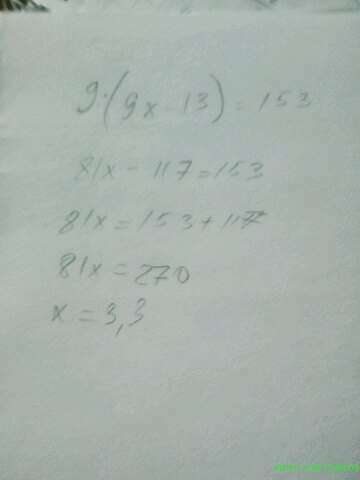 9·(9x-13)=153
81x-117=153
81x=153+117
81x=270
x=3,3